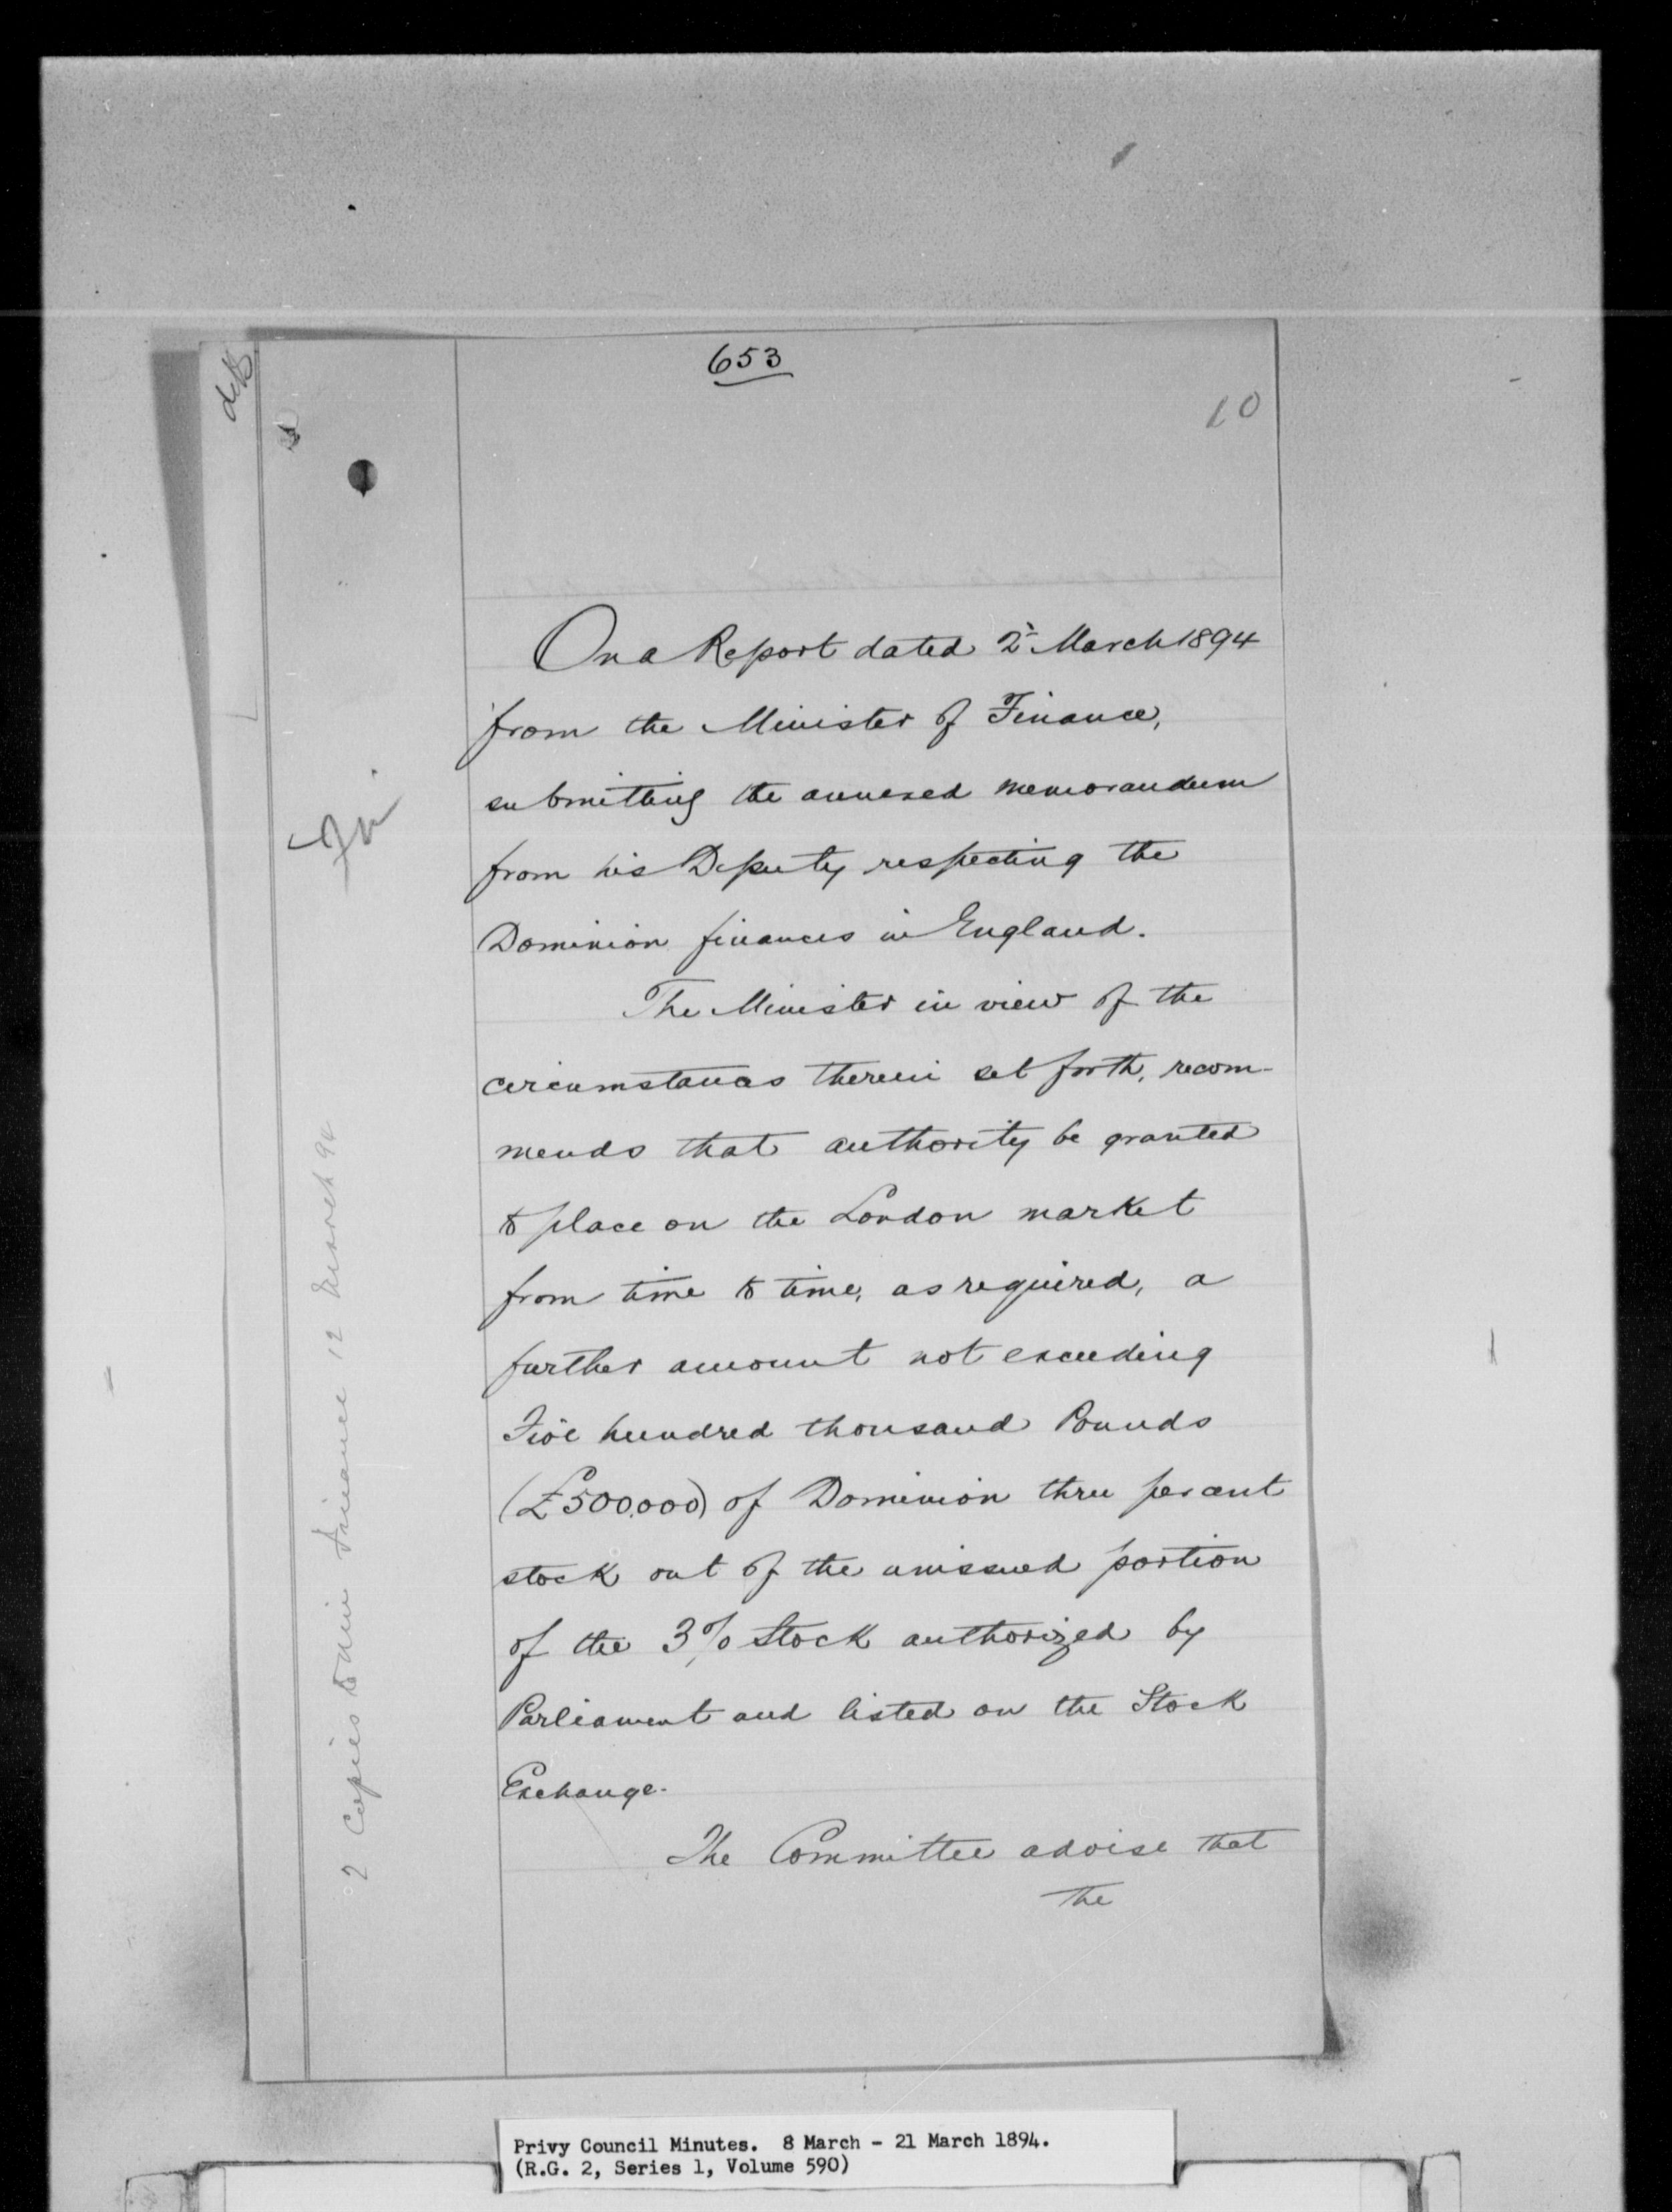 653
10
On a Report dated 2nd March 1894
from the Minister of Finance,
submitting the annexed memorandum
from his Deputy respecting the
Dominion finances in England.
The Minister in view of the
circumstances therein set forth, recom-
mends that authority be granted
to place on the London market
from time to time, as required, a
further amount not exceeding
Five hundred thousand Pounds
(£500.000) of Dominion three per cent
stock out of the unissued portion
of the 3% Stock authorized by
Parliament and listed on the Stock
Exchange.
The Committee advise that
the
Fin
2 Copies to Min Finance 12 March 94
Privy Council Minutes. 8 March - 21 March 1894.
(R.G. 2, Series 1, Volume 590)